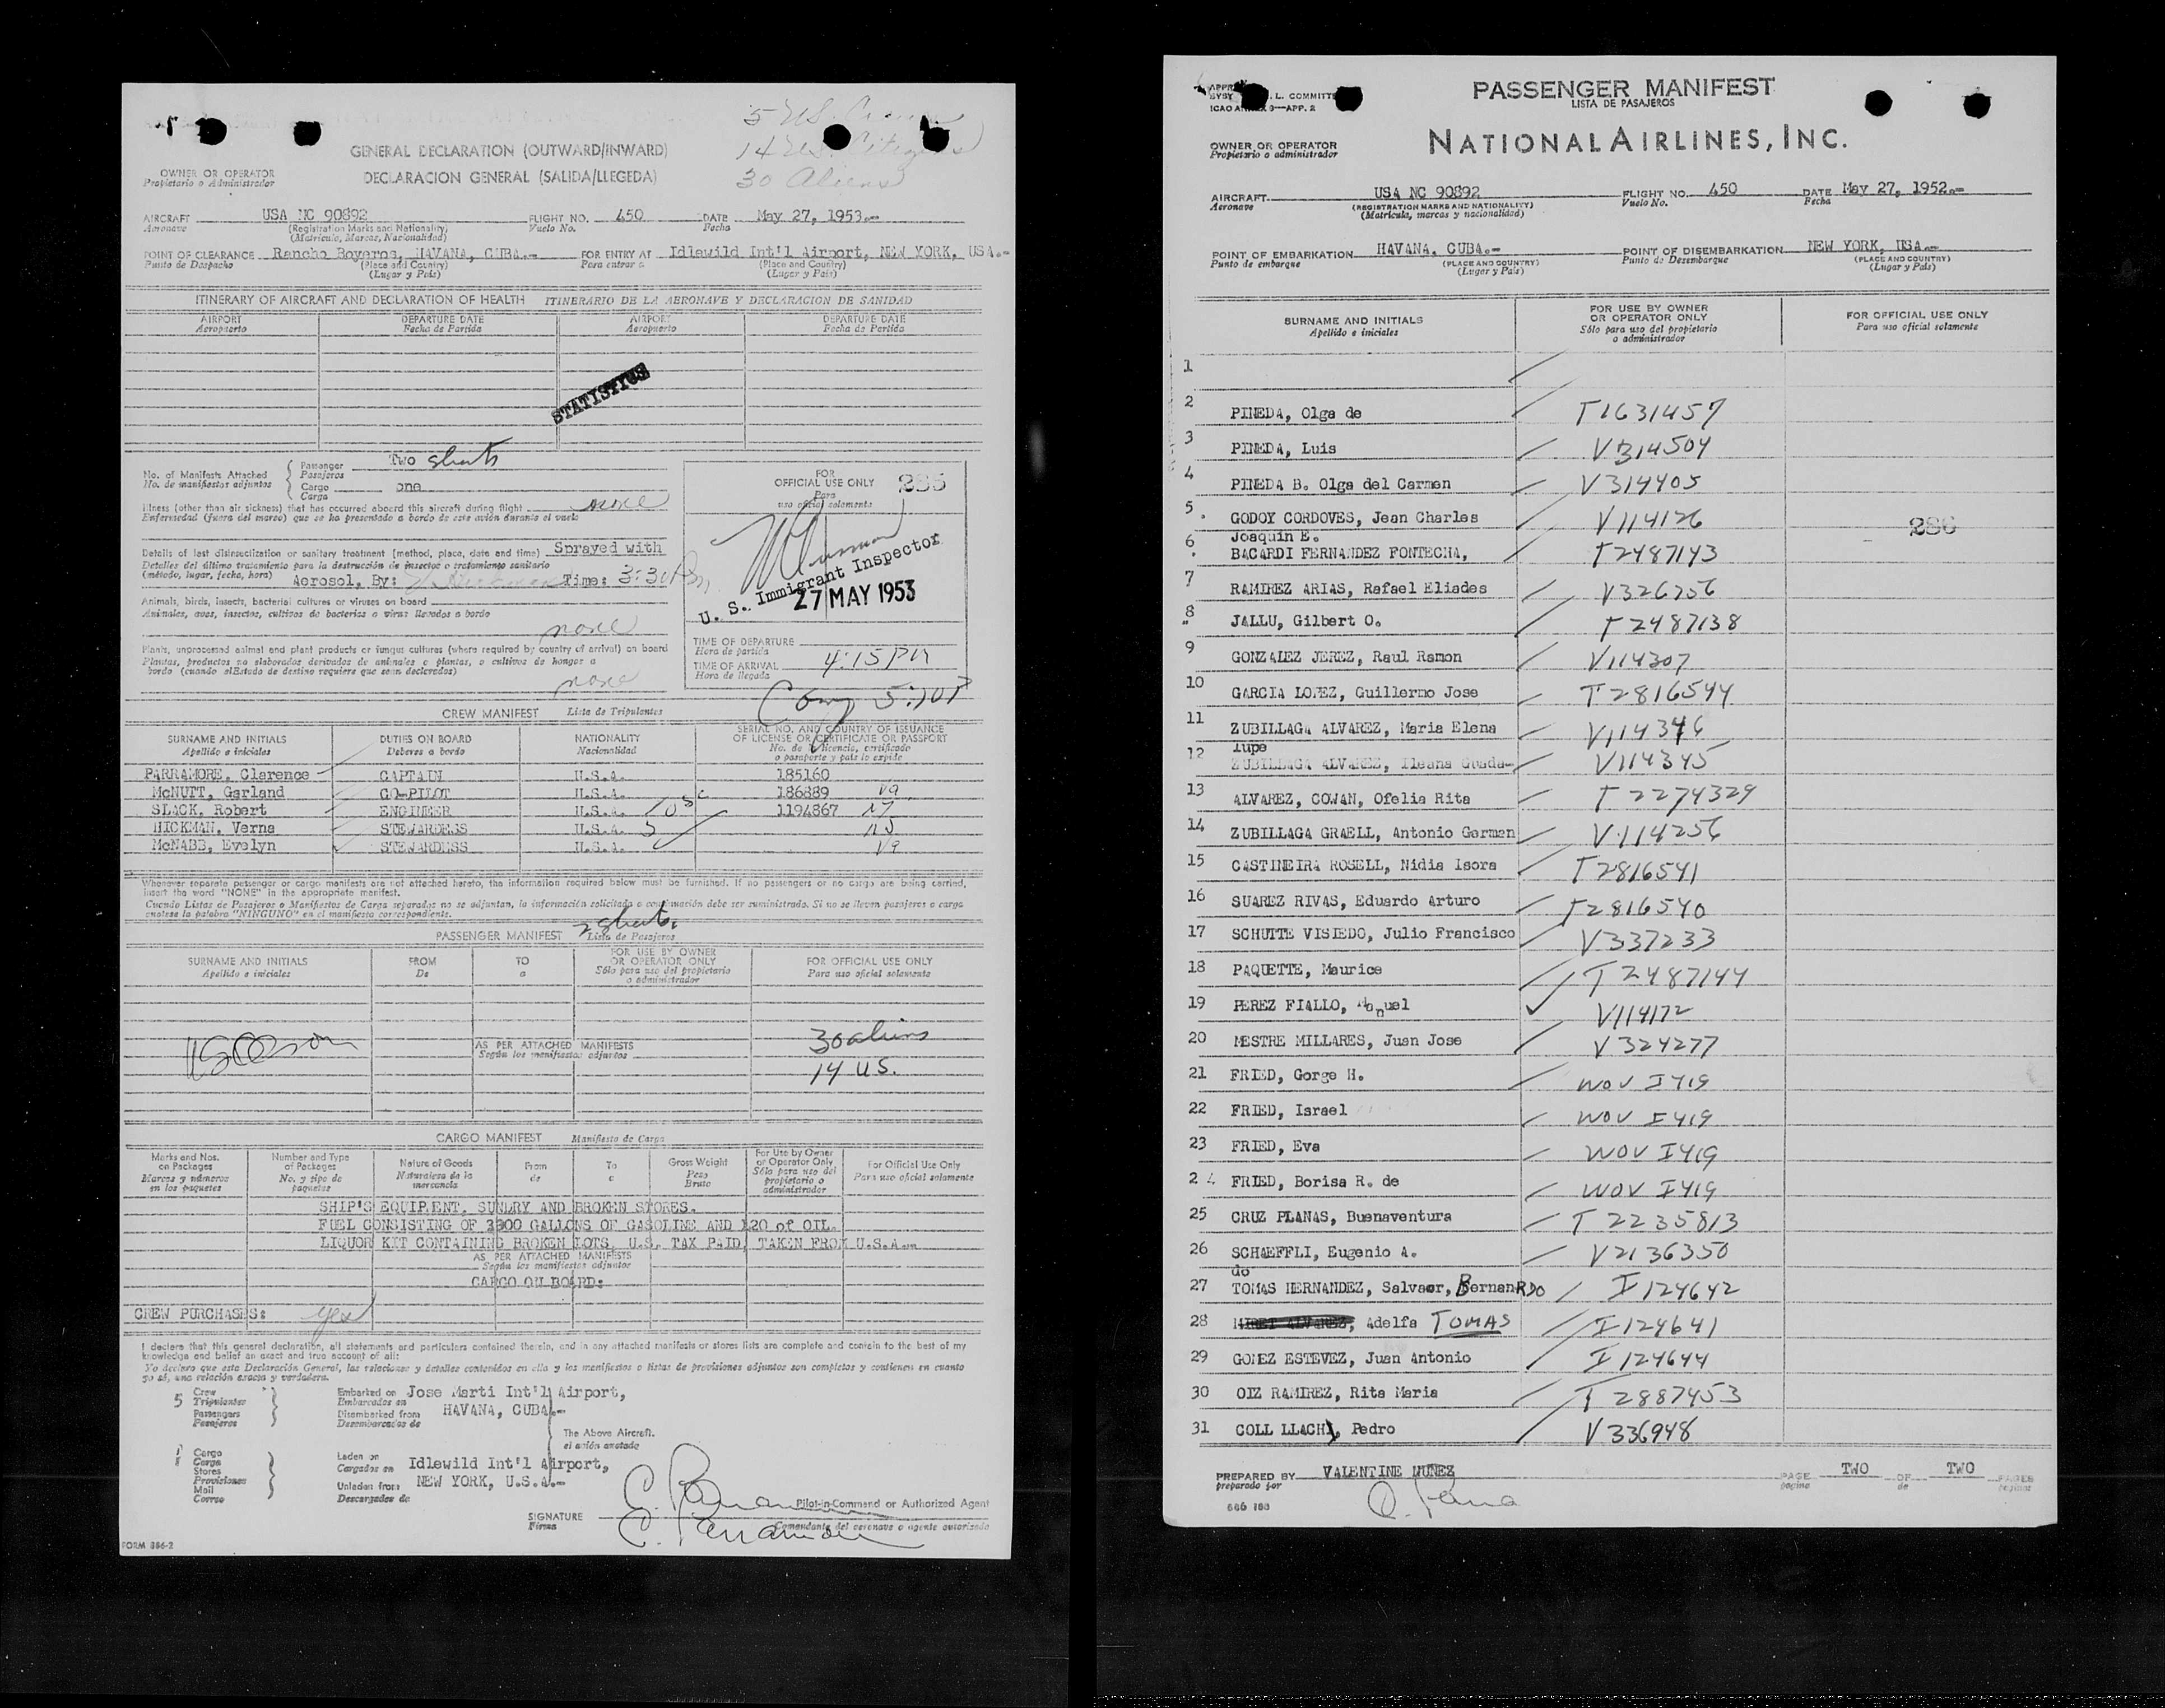 5 US.
14 US. Citizens
30 Aliens
GENERAL DECLARATION (OUTWARD/INWARD)
DECLARACION GENERAL (SALIDA/LLEGEDA)
OWNER OR OPERATOR
Propietario o Administrador
AIRCRAFT USA NC 90892 FLIGHT NO. 450 DATE May 27, 1953.-
Aeronave (Registration Marks and Nationality) Vuelo No. Fecha
(Matricula, Marcas, Nacionalidad)
POINT OF CLEARANCE Rancho Boyeros, HAVANA, CUBA.- FOR ENTRY AT Idlewild Int'l Airport, NEW YORK, USA.-
Punto de Despacho (Place and Country) Para entrar a (Place and Country)
(Lugar y Pais) (Lugar y Pais)
ITINERARY OF AIRCRAFT AND DECLARATION OF HEALTH ITINERARIO DE LA AERONAVE Y DECLARACION DE SANIDAD
AIRPORT DEPARTURE DATE AIRPORT DEPARTURE DATE
Aeropuerto Fecha de Partida Aeropuerto Fecha de Partida
STATISTICS
No. of Manifests Attached Passenger Two sheets
No. de manifiestos adjuntos Pasajeros
Cargo one
Carga
Illness (other than air sickness) that has occurred aboard this aircraft during flight none
Enfermedad (fuera del mareo) que se ha presentado a bordo de este avión durante el vuelo
Details of last disinsectization or sanitary treatment (method, place, date and time) Sprayed with
Detalles del último tratamiento para la destrucción de insectos o tratamiento sanitario
(método, lugar, fecha, hora) Aerosol. By: Time: 3:30 Pm
Animals, birds, insects, bacterial cultures or viruses on board
Animales, aves, insectos, cultivos de bacterias o virus llevados a bordo
none
Plants, unprocessed animal and plant products or fungus cultures (where required by country of arrival) on board
Plantas, productos no elaborados derivados de animales o plantas, o cultivos de hongos a
bordo (cuando el Estado de destino requiere que sean declarados)
none
FOR
OFFICIAL USE ONLY
Para
uso oficial solamente
U. S. Immigrant Inspector
27 MAY 1953
TIME OF DEPARTURE
Hora de partida
TIME OF ARRIVAL 4:15 PM
Hora de llegada
CREW MANIFEST Lista de Tripulantes
SURNAME AND INITIALS DUTIES ON BOARD NATIONALITY SERIAL NO. AND COUNTRY OF ISSUANCE
OF LICENSE OR CERTIFICATE OR PASSPORT
Apellido e iniciales Deberes a bordo Nacionalidad No. de licencia, certificado
o pasaporte y pais lo expide
PARRAMORE, Clarence CAPTAIN U.S.A. 185160
McNUTT, Garland CO-PILOT U.S.A. 186889
SLACK, Robert ENGINEER U.S.A. 1194867
HICKMAN, Verna STEWARDESS U.S.A. 5
McNABB, Evelyn STEWARDESS U.S.A.
Whenever separate passenger or cargo manifests are not attached hereto, the information required below must be furnished. If no passengers or no cargo are being carried,
insert the word "NONE" in the appropriate manifest.
Cuando Listas de Pasajeros o Manifiestos de Carga separados no se adjuntan, la información solicitada a continuación debe ser suministrada. Si no se lleven pasajeros o carga
anotese la palabra "NINGUNO" en el manifiesto correspondiente.
PASSENGER MANIFEST 2 sheets
Lista de Pasajeros
SURNAME AND INITIALS FROM TO FOR USE BY OWNER OR OPERATOR ONLY FOR OFFICIAL USE ONLY
Apellido e iniciales De a Sólo para uso del propietario o administrador Para uso oficial solamente
AS PER ATTACHED MANIFESTS
Según los manifiestos adjuntos
30 aliens
14 U.S.
CARGO MANIFEST Manifiesto de Carga
Marks and Nos. on Packages Number and Type of Packages Nature of Goods From To Gross Weight For Use by Owner or Operator Only For Official Use Only
Marcas y números en los paquetes No. y tipo de paquetes Naturaleza de la mercancia de a Peso Bruto Sólo para uso del propietario o administrador Para uso oficial solamente
SHIP'S EQUIPMENT, SUNDRY AND BROKEN STORES.
FUEL CONSISTING OF 3000 GALLONS OF GASOLINE AND 120 of OIL.
LIQUOR KIT CONTAINING BROKEN LOTS, U.S. TAX PAID, TAKEN FROM U.S.A.-
AS PER ATTACHED MANIFESTS
Según los manifiestos adjuntos
CARGO ON BOARD:
CREW PURCHASES: yes
I declare that this general declaration, all statements and particulars contained therein, and in any attached manifests or stores lists are complete and contain to the best of my
knowledge and belief an exact and true account of all:
Yo declaro que esta Declaración General, las relaciones y detalles contenidos en ella y los manifiestos o listas de provisiones adjuntos son completos y contienen en cuanto
yo sé, una relación exacta y verdadera.
5 Crew Embarked on Jose Marti Int'l Airport,
Tripulantes Embarcados en
Passengers Disembarked from HAVANA, CUBA.-
Pasajeros Desembarcados de
The Above Aircraft.
el avión anotado
Cargo
Carga Laden on Idlewild Int'l Airport,
Stores Cargados en
Provisiones Unladen from NEW YORK, U.S.A.-
Mail Descargados de
Correo
Pilot-in-Command or Authorized Agent
SIGNATURE
Firma Comandante del aeronave o agente autorizado
C. Parramore
FORM 886-2
PASSENGER MANIFEST
LISTA DE PASAJEROS
L. COMMITTE
ICAO ANNEX 9—APP. 2
NATIONAL AIRLINES, INC.
OWNER OR OPERATOR
Propietario o administrador
AIRCRAFT USA NC 90892 FLIGHT NO. 450 DATE May 27, 1952.-
Aeronave (REGISTRATION MARKS AND NATIONALITY) Vuelo No. Fecha
(Matricula, marcas y nacionalidad)
POINT OF EMBARKATION HAVANA, CUBA.- POINT OF DISEMBARKATION NEW YORK, USA.-
Punto de embarque (PLACE AND COUNTRY) Punto de Desembarque (PLACE AND COUNTRY)
(Lugar y País) (Lugar y País)
SURNAME AND INITIALS FOR USE BY OWNER OR OPERATOR ONLY FOR OFFICIAL USE ONLY
Apellido e iniciales Sólo para uso del propietario o administrador Para uso oficial solamente
1
2 PINEDA, Olga de T1631457
3 PINEDA, Luis V314504
4 PINEDA B. Olga del Carmen V314405
5 GODOY CORDOVES, Jean Charles V114126
286
Joaquin E.
6 BACARDI FERNANDEZ FONTECHA, T2487143
7 RAMIREZ ARIAS, Rafael Eliades V326756
8 JALLU, Gilbert O. T2487138
9 GONZALEZ JEREZ, Raul Ramon V114307
10 GARCIA LOPEZ, Guillermo Jose T2816544
11 ZUBILLAGA ALVAREZ, Maria Elena V114346
lupe
12 ZUBILLAGA ALVAREZ, Ileana Guada- V114345
13 ALVAREZ, COWAN, Ofelia Rita T2274329
14 ZUBILLAGA GRAELL, Antonio German V114256
15 CASTINEIRA ROSELL, Nidia Isora T2816541
16 SUAREZ RIVAS, Eduardo Arturo T2816540
17 SCHUTTE VISIEDO, Julio Francisco V337233
18 PAQUETTE, Maurice T2487144
19 PEREZ FIALLO, V114172
20 MESTRE MILLARES, Juan Jose V324277
21 FRIED, Gorge H. WOV I419
22 FRIED, Israel WOV I419
23 FRIED, Eva WOV I419
24 FRIED, Borisa R. de WOV I419
25 CRUZ PLANAS, Buenaventura T2235813
26 SCHAEFFLI, Eugenio A. V2136350
do
27 TOMAS HERNANDEZ, Salvaor, BernanRDO I124642
28 Adelfa TOMAS I124641
29 GOMEZ ESTEVEZ, Juan Antonio I124644
30 OIZ RAMIREZ, Rita Maria T2887453
31 COLL LLACH, Pedro V336948
PREPARED BY VALENTINE NUNEZ PAGE TWO OF TWO PAGES
preparado por página de